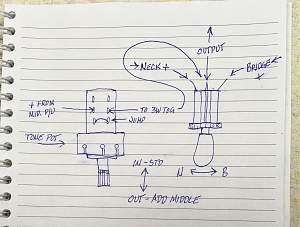 OUTPUT
NECK +
BRIDGE
+
+ FROM
MID. P/U
TO 3W TOG
JUMP
TONE POT
IN - STD
OUT - ADD MIDDLE
N
B